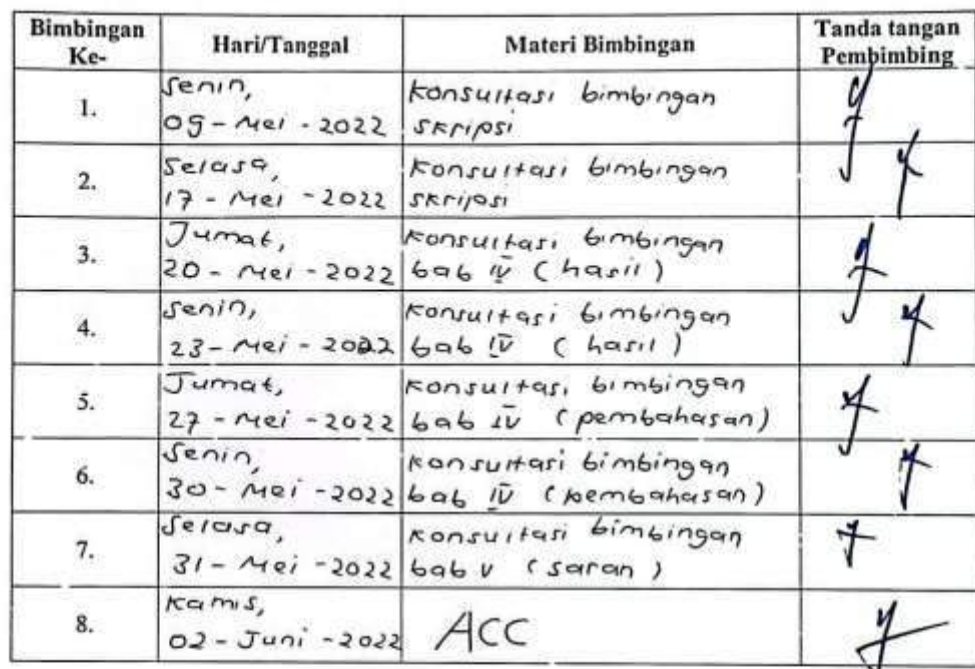 Bimbingan Ke-
Hari/Tanggal
Materi Bimbingan
Tanda tangan Pembimbing
1.
Senin,
09 - Mei - 2022
Konsultasi bimbingan
skripsi
2.
Selasa,
17 - Mei - 2022
Konsultasi bimbingan
skripsi
3.
Jumat,
20 - Mei - 2022
Konsultasi bimbingan
bab IV (hasil)
4.
Senin,
23 - Mei - 2022
Konsultasi bimbingan
bab IV (hasil)
5.
Jumat,
27 - Mei - 2022
Konsultasi bimbingan
bab IV (pembahasan)
6.
Senin,
30 - Mei - 2022
Konsultasi bimbingan
bab IV (pembahasan)
7.
Selasa,
31 - Mei - 2022
Konsultasi bimbingan
bab V (saran)
8.
Kamis,
02 - Juni - 2022
ACC